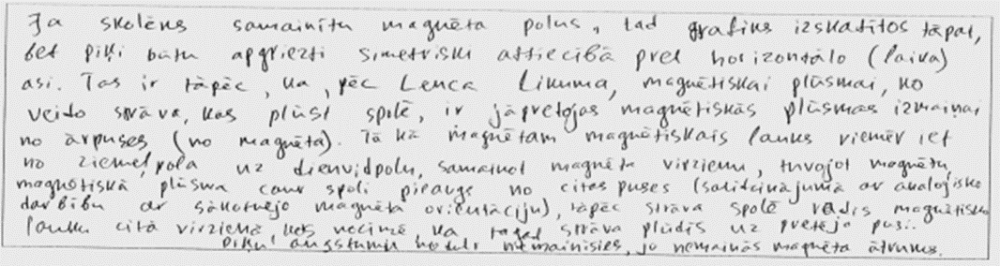 Ja skolēns samainītu magnēta polus, tad grafiks izskatītos tāpat,
bet piķi būtu apgriezti simetriski attiecībā pret horizontālo (laika)
asi. Tas ir tāpēc, ka, pēc Lenca Likuma, magnētiskai plūsmai, ko
veido strāva, kas plūst spolē, ir jāpretojas magnētiskās plūsmas izmaiņai
no ārpuses (no magnēta). Tā kā magnētam magnētiskais lauks vienmēr iet
no ziemeļpola uz dienvidpolu, samainot magnēta virzienu, tuvojot magnētu,
magnētiskā plūsma caur spoli pieaugs no citas puses (salīdzinājumā ar analoģisko
darbību ar sākotnējo magnēta orientāciju), tāpēc strāva spolē radīs magnētisko
lauku citā virzienā, kas nozīmē, ka tagad strāva plūdīs uz pretējo pusi.
Piķu augstumu moduļi nemainīsies, jo nemainās magnēta ātrums.